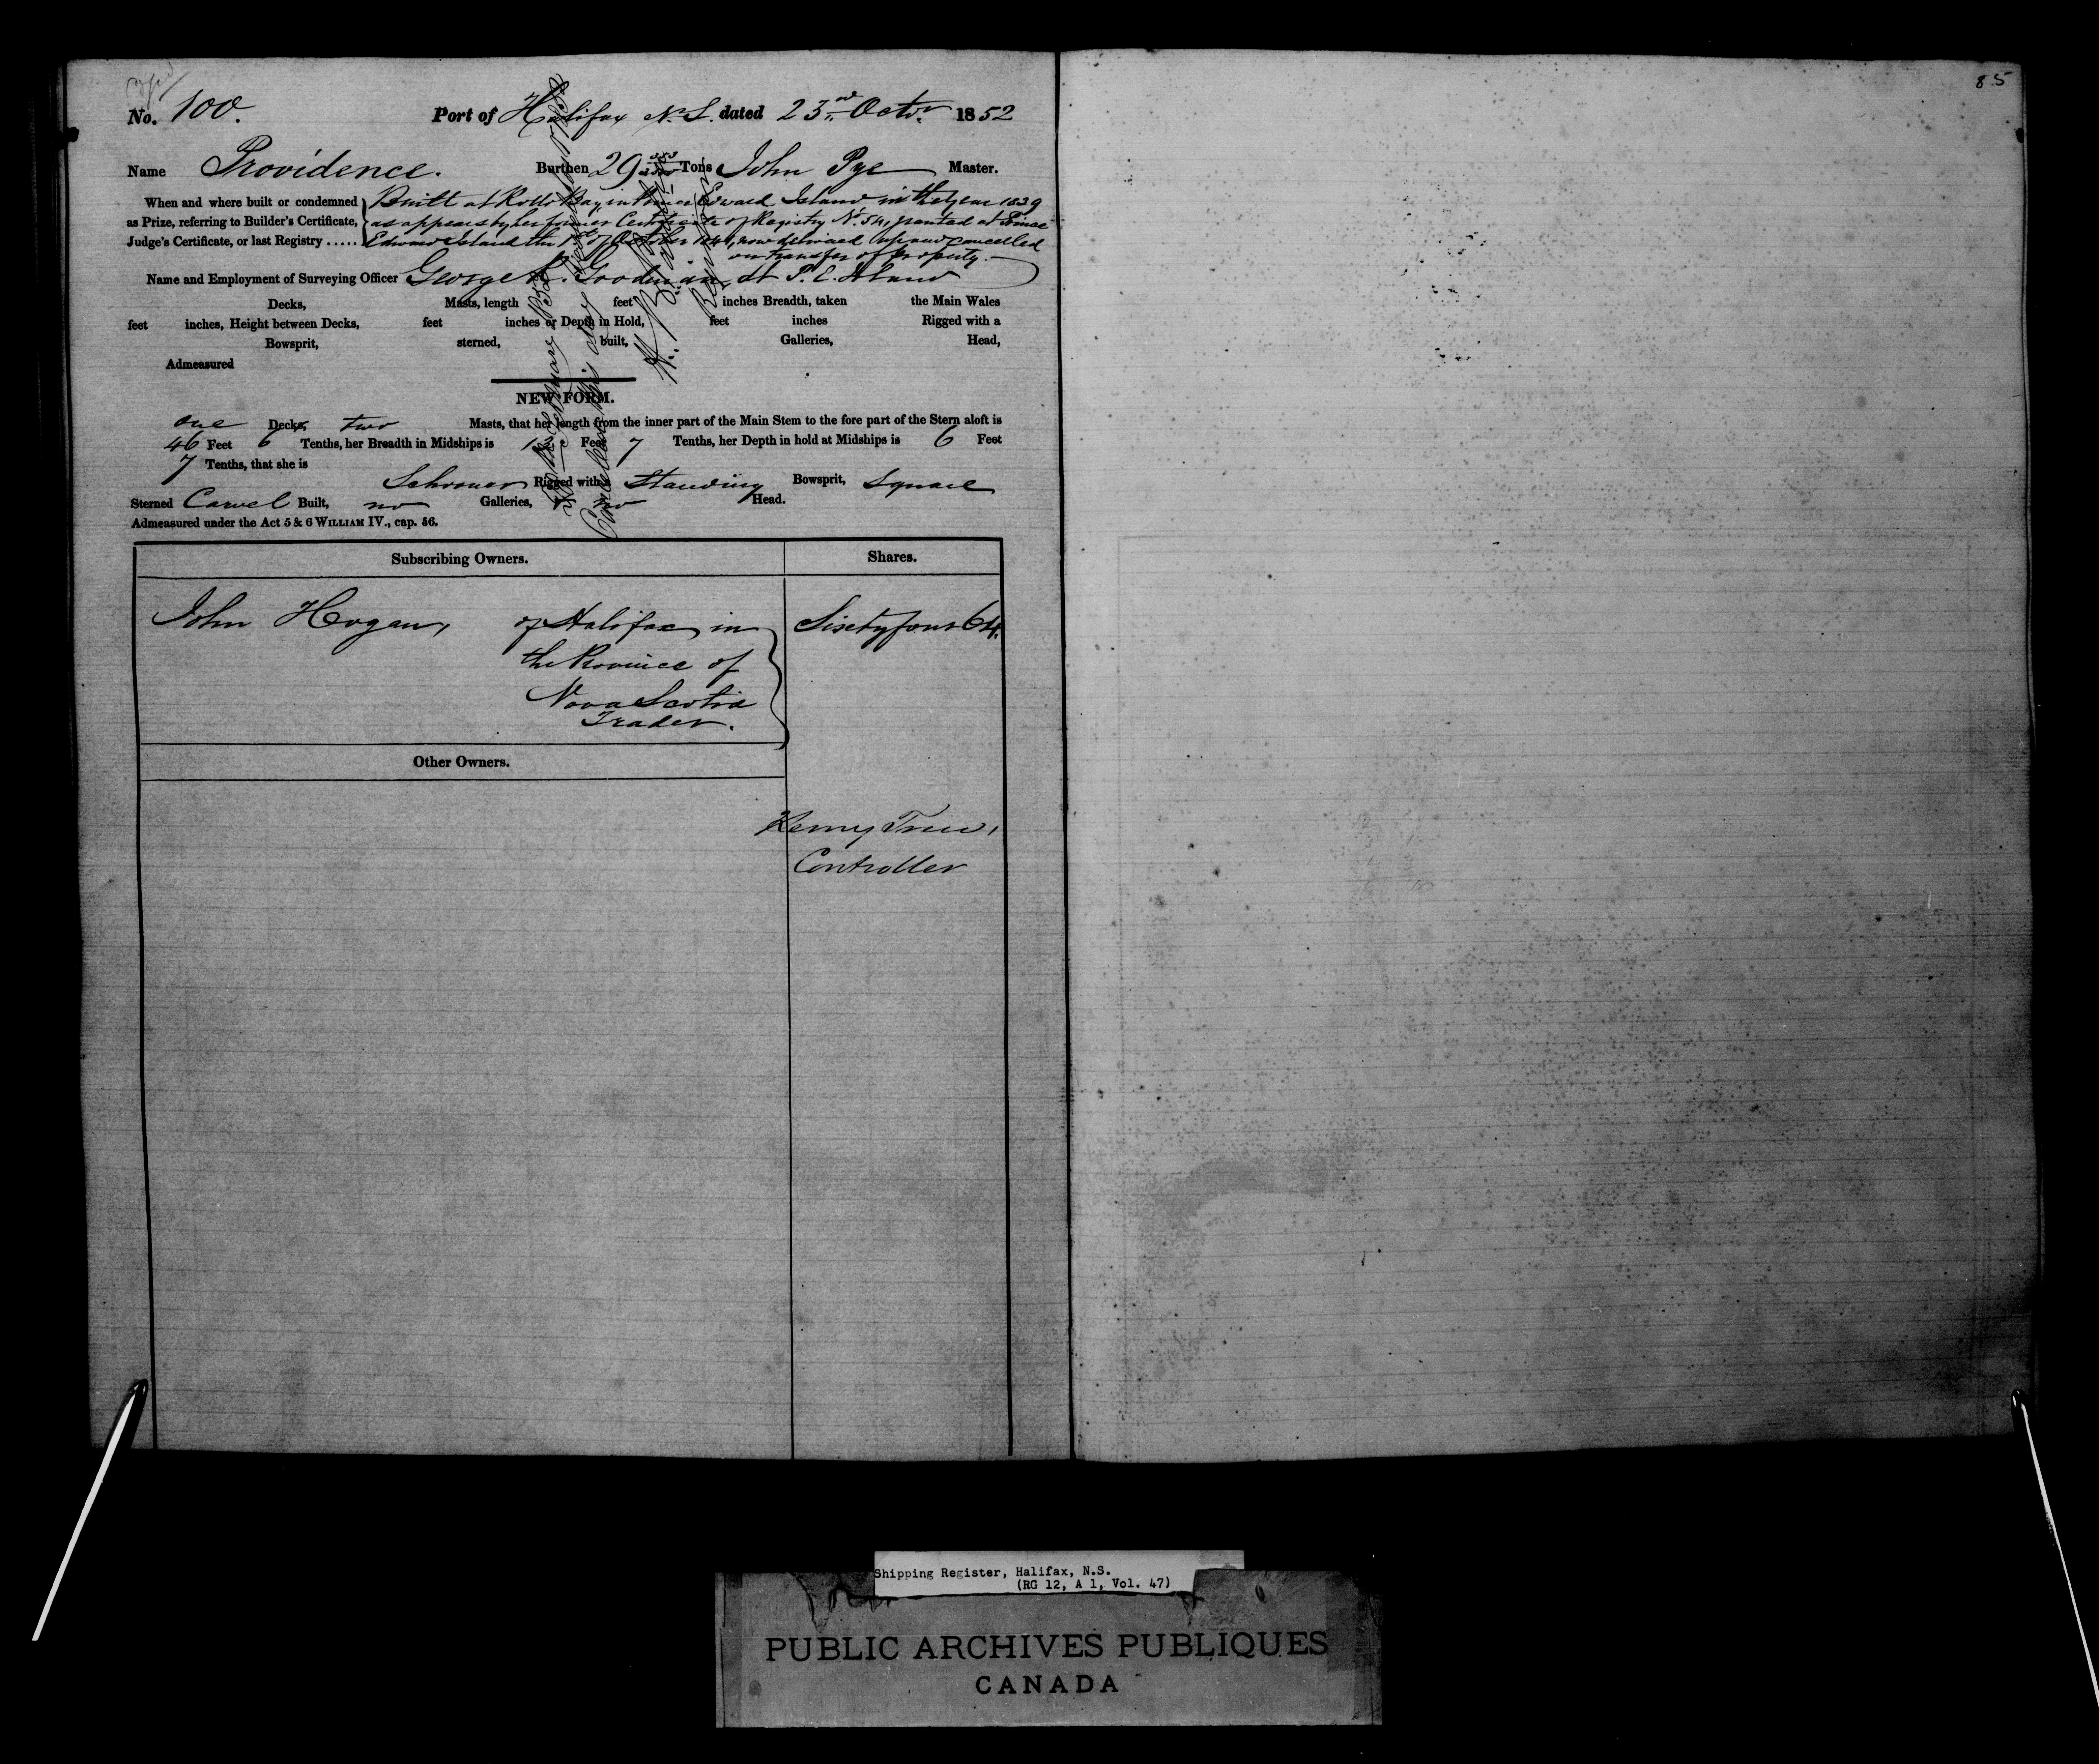 85
No. 100. Port of Halifax N.S. dated 23rd Octr. 1852
Name Providence. Burthen 29 Tons John Pye Master.
When and where built or condemned as Prize, referring to Builder's Certificate, Judge's Certificate, or last Registry .....
Built at Rollo Bay, in Prince Edward Island in the Year 1839
as appears by her former Certificate of Registry No. 54, granted at Prince
Edward Island the October now delivered up and cancelled
on transfer of Property.
Name and Employment of Surveying Officer George R. Goodman, at P. E. Island
Decks, Masts, length feet inches Breadth, taken the Main Wales
feet inches, Height between Decks, feet inches or Depth in Hold, feet inches Rigged with a
Bowsprit, sterned, built, Galleries, Head,
Admeasured
NEW FORM.
one Decks two Masts, that her length from the inner part of the Main Stem to the fore part of the Stern aloft is
46 Feet 6 Tenths, her Breadth in Midships is Feet 7 Tenths, her Depth in hold at Midships is 6 Feet
7 Tenths, that she is
Schooner Rigged with a Standing Bowsprit, Square
Sterned Carvel Built, no Galleries, no Head.
Admeasured under the Act 5 & 6 WILLIAM IV., cap. 56.
Cancelled this day
Subscribing Owners. Shares.
John Hogan, of Halifax in Sixtyfour 64.
the Province of
Nova Scotia
Trader.
Other Owners.
Henry Trew,
Controller
Shipping Register, Halifax, N.S.
(RG 12, A 1, Vol. 47)
PUBLIC ARCHIVES PUBLIQUES
CANADA